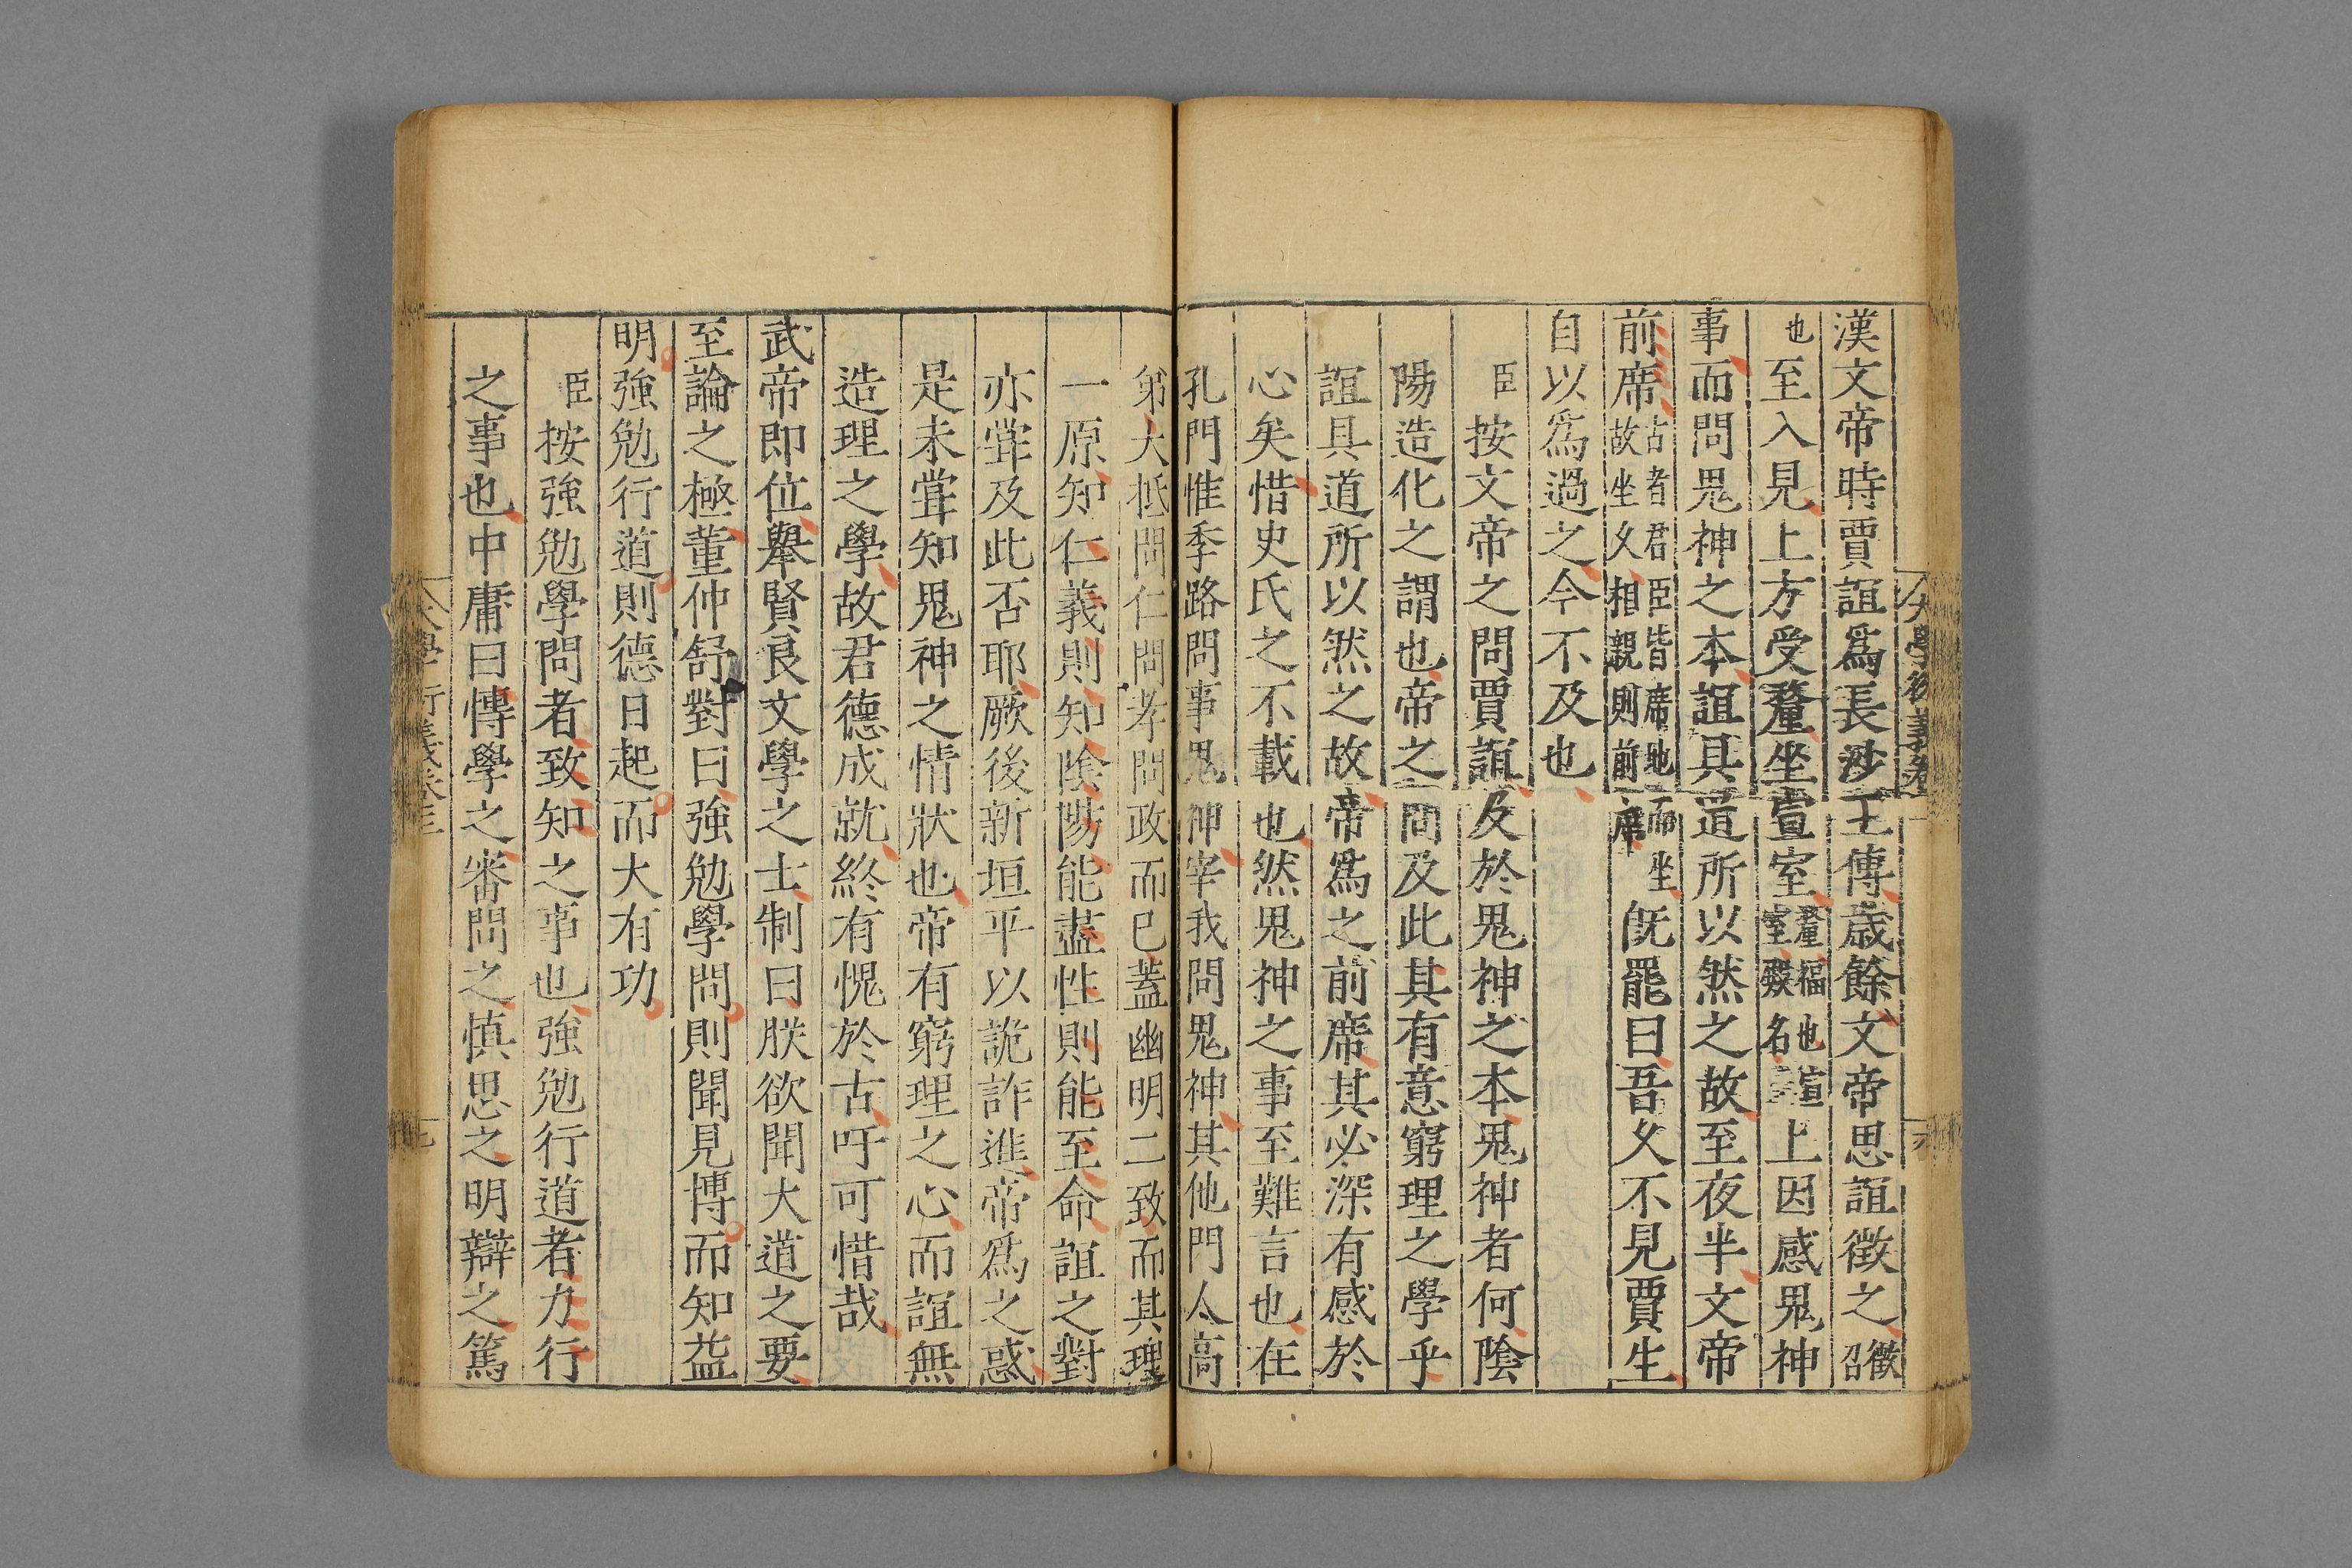 漢文帝時賈誼爲長沙王傅歲餘文帝思誼徵之徵召
也至入見上方受釐坐宣室釐福也宣室殿名上因感鬼神
事而問鬼神之本誼具道所以然之故至夜半文帝
前席古者君臣皆席地而坐故坐久相親則前席旣罷曰吾久不見賈生
自以爲過之今不及也
臣按文帝之問賈誼及於鬼神之本鬼神者何陰
陽造化之謂也帝之問及此其有意窮理之學乎
誼具道所以然之故帝爲之前席其必深有感於
心矣惜史氏之不載也然鬼神之事至難言也在
孔門惟季路問事鬼神宰我問鬼神其他門人高
第大抵問仁問孝問政而已蓋幽明二致而其理
一原知仁義則知陰陽能盡性則能至命誼之對
亦嘗及此否耶厥後新垣平以詭詐進帝爲之惑
是未嘗知鬼神之情狀也帝有窮理之心而誼無
造理之學故君德成就終有愧於古吁可惜哉
武帝即位舉賢良文學之士制曰朕欲聞大道之要
至論之極董仲舒對曰強勉學問則聞見博而知益
明強勉行道則德日起而大有功
臣按強勉學問者致知之事也強勉行道者力行
之事也中庸曰博學之審問之慎思之明辯之篤
大學衍義卷三